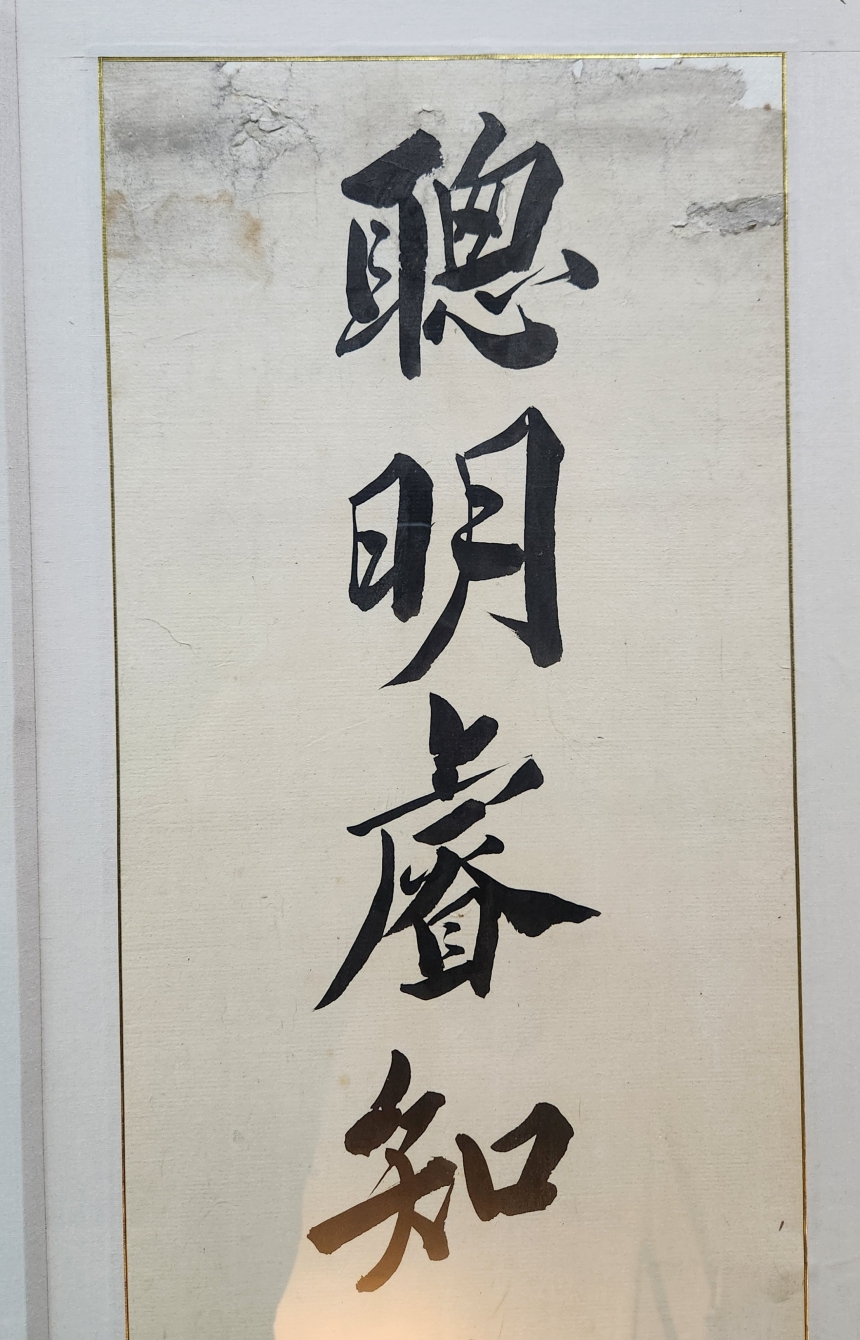 聰明睿知